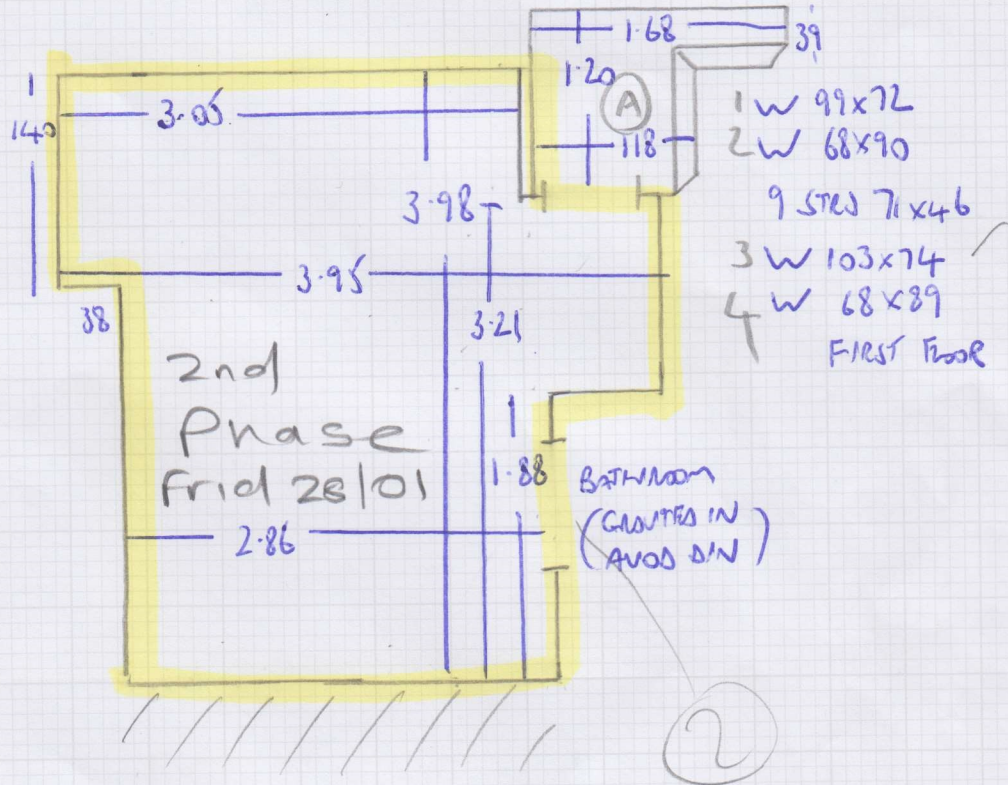 1.68
39
1.20
A
1 W 99x72
118
2 W 68x90
9 STRS 71x46
3 W 103x74
4 W 68x89
FIRST FLOOR
140
3.05
3.98
3.95
38
3.21
2nd
Phase
Frid 28/01
1.88
BATHROOM
2.86
IN
2